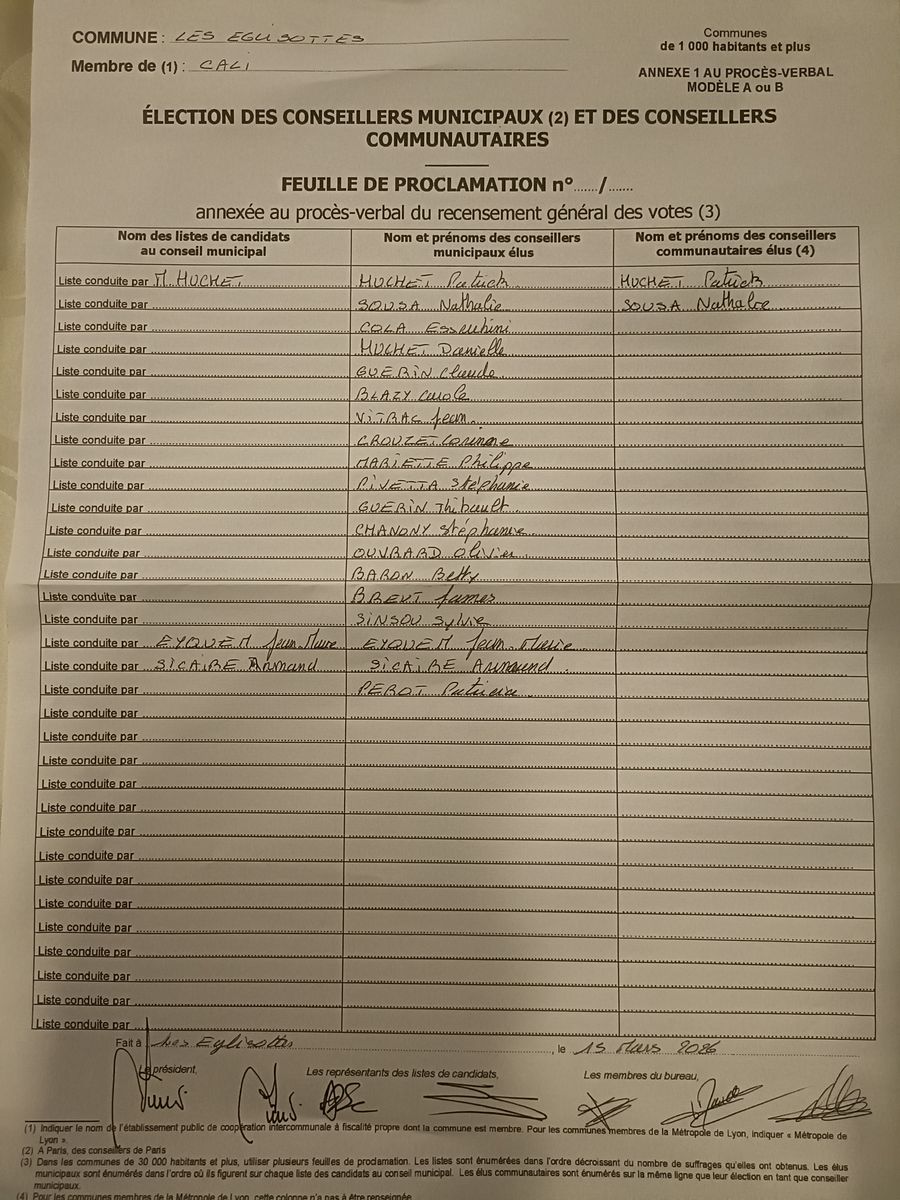 COMMUNE : LES EGLISOTTES
Communes
de 1 000 habitants et plus
Membre de (1) : CALI
ANNEXE 1 AU PROCÈS-VERBAL
MODÈLE A ou B
ÉLECTION DES CONSEILLERS MUNICIPAUX (2) ET DES CONSEILLERS
COMMUNAUTAIRES
FEUILLE DE PROCLAMATION n°....../.......
annexée au procès-verbal du recensement général des votes (3)
Nom des listes de candidats au conseil municipal | Nom et prénoms des conseillers municipaux élus | Nom et prénoms des conseillers communautaires élus (4)
Liste conduite par M. HUCHET | HUCHET Patrick | HUCHET Patrick
Liste conduite par | SOUSA Nathalie | SOUSA Nathalie
Liste conduite par | COLA
Liste conduite par | HUCHET Danielle
Liste conduite par | GUERIN Claude
Liste conduite par | BLAZY Carole
Liste conduite par | VITRAC Jean
Liste conduite par | CROUZET Corinne
Liste conduite par | MARIETTE Philippe
Liste conduite par | PIVETTA Stéphanie
Liste conduite par | GUERIN Thibault
Liste conduite par | CHANONY Stéphanie
Liste conduite par | OUVRARD Olivier
Liste conduite par | BARON Betty
Liste conduite par | James
Liste conduite par | SINSOU Sylvie
Liste conduite par EYQUEM Jean-Marie | EYQUEM Jean-Marie
Liste conduite par SICAIRE Armand | SICAIRE Armand
Liste conduite par | PEROT Patricia
Liste conduite par
Liste conduite par
Liste conduite par
Liste conduite par
Liste conduite par
Liste conduite par
Liste conduite par
Liste conduite par
Liste conduite par
Liste conduite par
Liste conduite par
Liste conduite par
Liste conduite par
Liste conduite par
Fait à Les Eglisottes, le 15 Mars 2026
Le président,
Les représentants des listes de candidats,
Les membres du bureau,
(1) Indiquer le nom de l'établissement public de coopération intercommunale à fiscalité propre dont la commune est membre. Pour les communes membres de la Métropole de Lyon, indiquer « Métropole de
Lyon ».
(2) A Paris, des conseillers de Paris
(3) Dans les communes de 30 000 habitants et plus, utiliser plusieurs feuilles de proclamation. Les listes sont énumérées dans l'ordre décroissant du nombre de suffrages qu'elles ont obtenus. Les élus
municipaux sont énumérés dans l'ordre où ils figurent sur chaque liste des candidats au conseil municipal. Les élus communautaires sont énumérés sur la même ligne que leur élection en tant que conseiller
municipaux.
(4) Pour les communes membres de la Métropole de Lyon, cette colonne n'a pas à être renseignée.